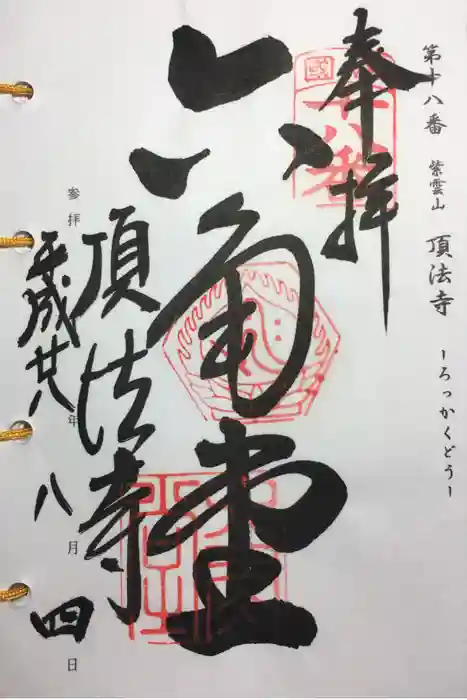 第十八番 紫雲山 頂法寺 ーろっかくどうー
奉拝
國
十八番
六角堂
頂法寺
参拝 平成廿八年 八月 四日